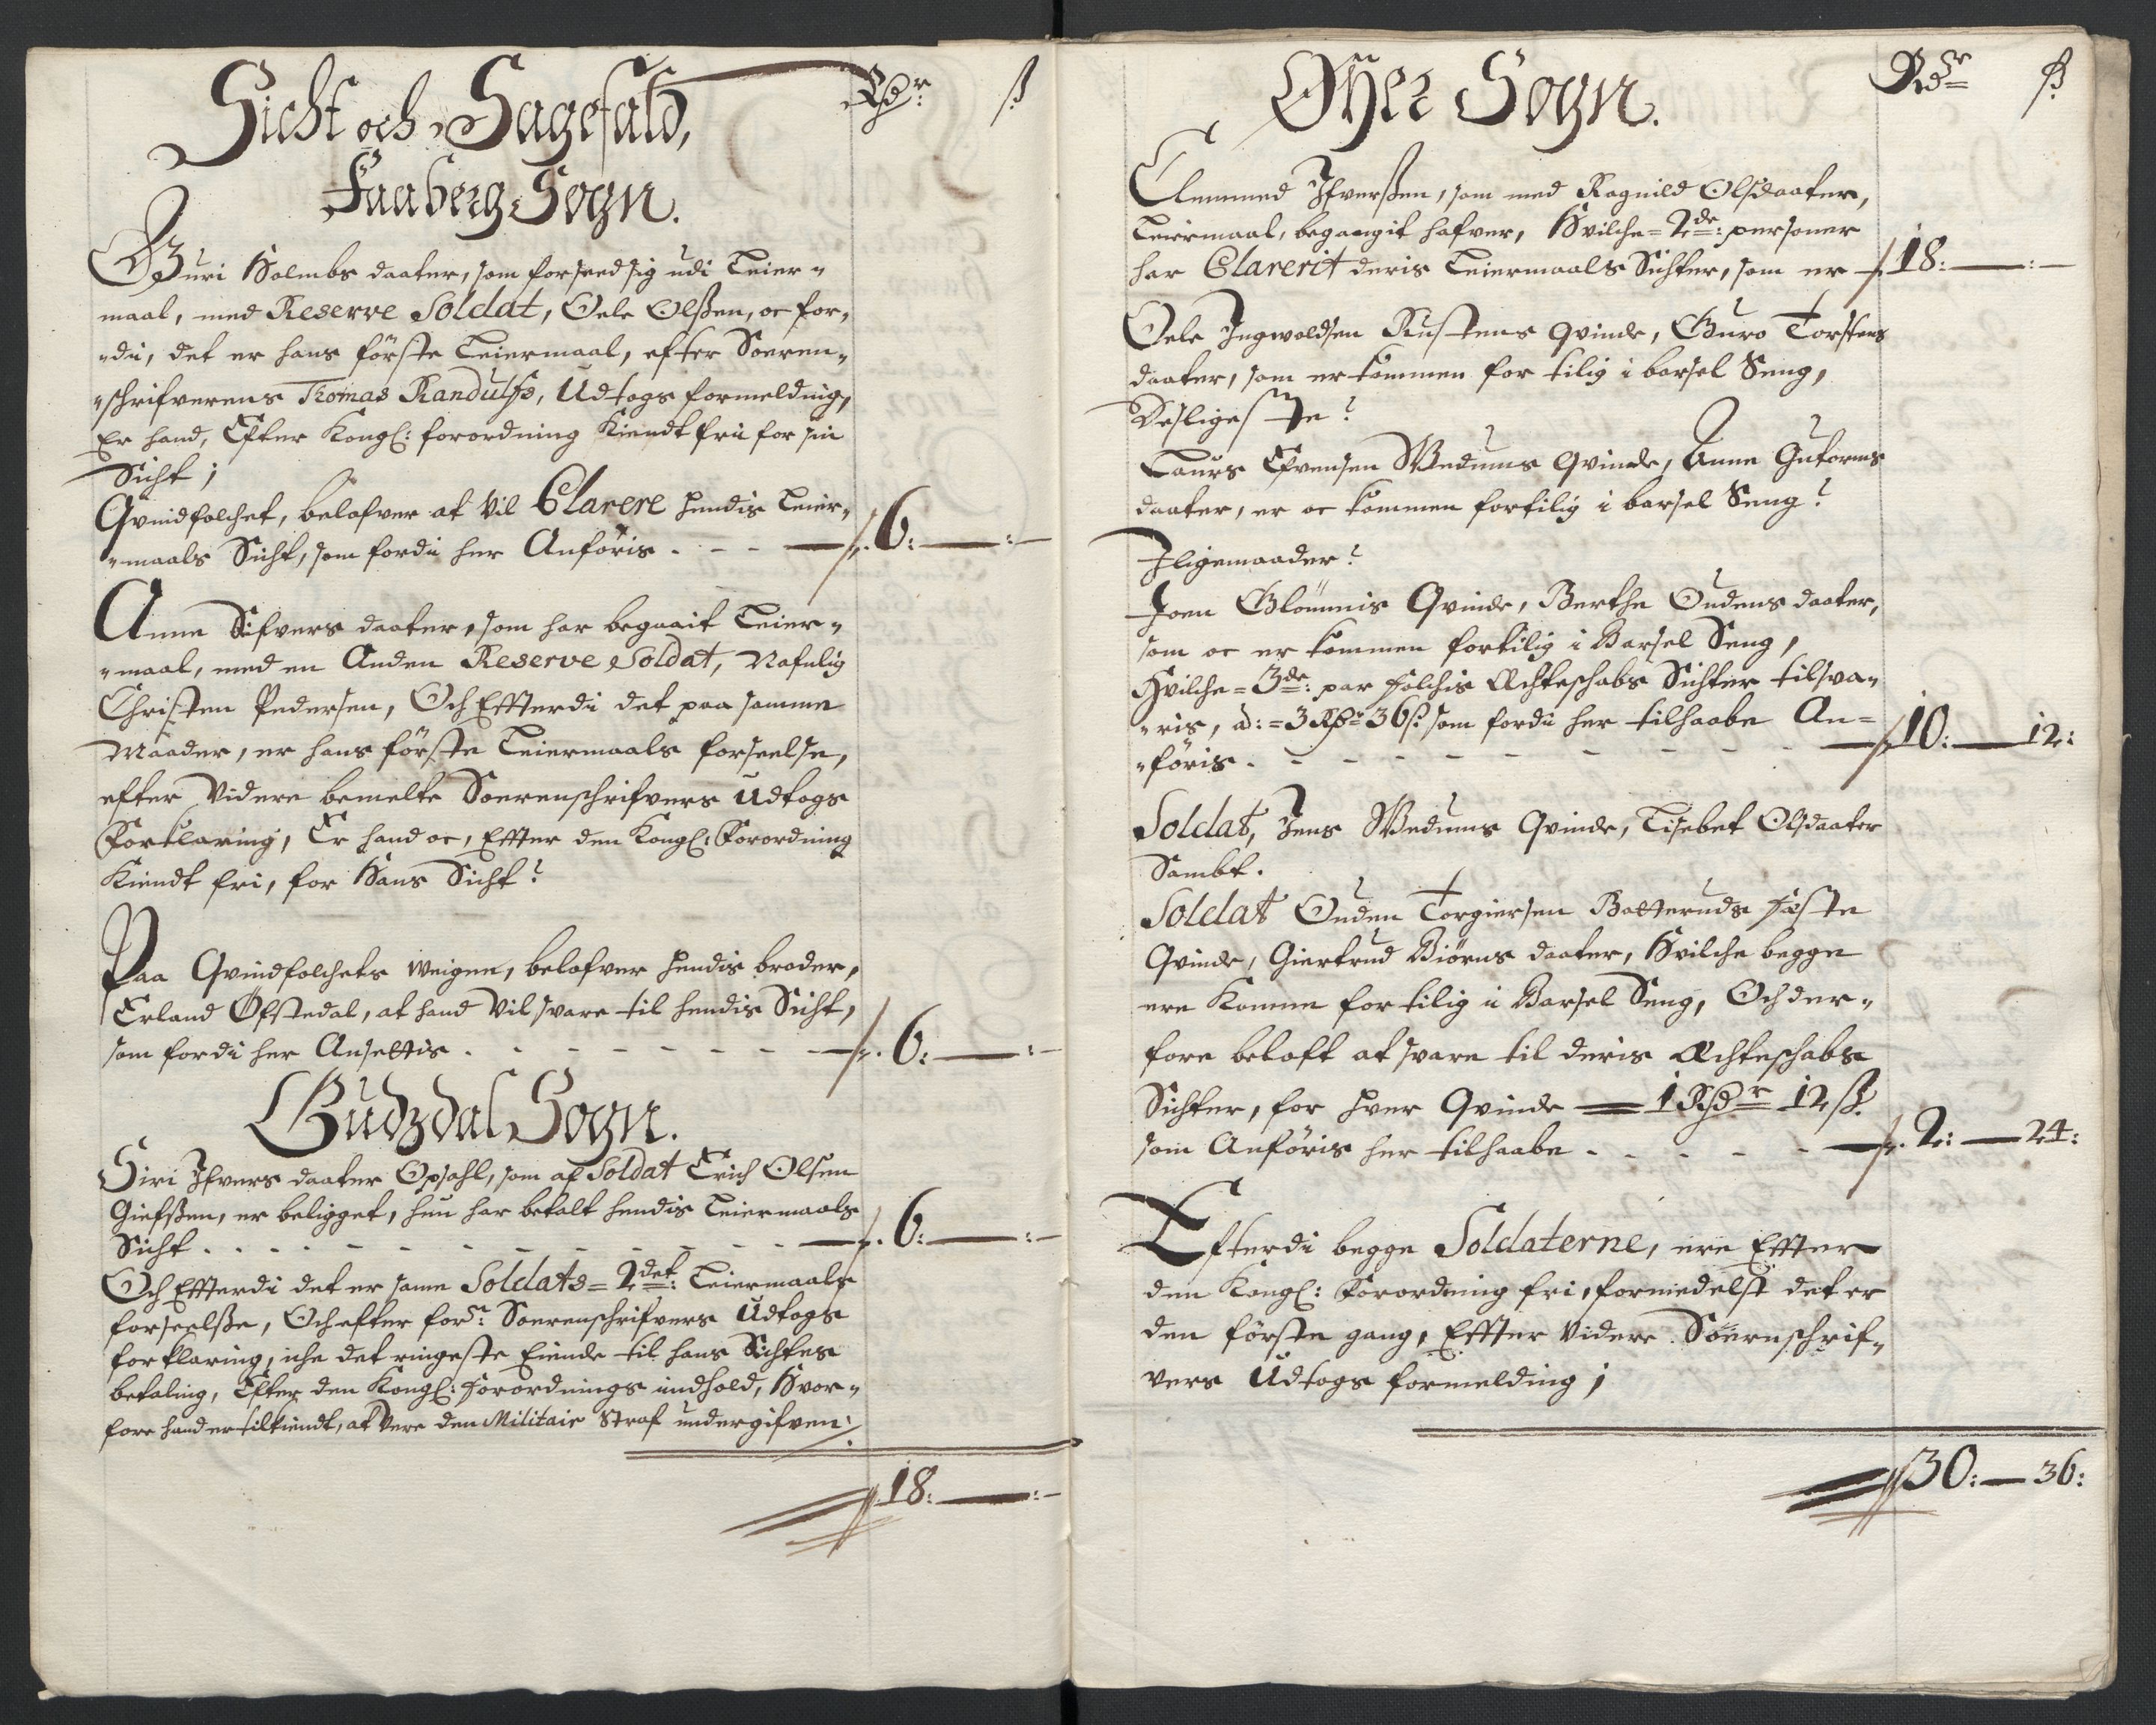 Sicht och Sagefald,
Rdr: ß
Faaberg Sogn.
Guri Holmbs daater, som forseed sig udi Leier-
maal, med Reserve Soldat, Oele Olßen, oc for,
-di, det er hans förste Leiermaal, efter Soeren-
-schrifverens Tomas Randulfs, Udtogs formelding,
Er hand, Efter Kongl: forordning Kiendt fri for sin
Sicht;
Qvindfolchet, belofver at vil Clarere hendis Leier-
-maals Sicht, som fordi her Anföris . - - - 6: — : —
Anne Sifvers daater, som har begaait Leier-
-maal, med en Anden Reserve Soldat, Nafnlig
Christen Pedersen, Och Effterdi det paa samme
Maader, er hans förste Leiermaals forseelse,
efter Videre bemelte Soerenschrifvers Udtogs
Forklaring, Er hand oc, Effter den Kongl: Forordning
Kiendt fri, for Hans Sicht?
Paa Qvindfolchets weigne, belofver hendis broder,
Erland Öfstedal, at hand vil svare til hendis Sicht,
som fordi her Ansettis . - - - - - 6: — : —
Gudzdal Sogn.
Siri Ifvers daater Opsahl, som af Soldat Erich Olsen
Giefßen, er beligget, hun har betalt hendis Leiermaals
Sicht . . . . - - - - - 6: — : —
Och Effterdi det er same Soldats = 2det: Leiermaals
forseelße, Och efter forn: Soerenschrifvers Udtogs
forklaring, iche det ringeste Eiende til hans Sichtes
betaling, Efter den Kongl: forordnings indhold, Hvor-
fore hand er tilkiendt, at Vere den Militair Straf undergifven:
18: — : —
Öyer Sogn.
Rdr ß
Ammund Ifverßen, som med Ragnild Olsdaater,
Leiermaal, begaangit hafver, Hvilche = 2de: personer
har Clarerit deris Leiermaals Sichter, som er - 18: — : —
Oele Ingwoldsen Rustens qvinde, Guro Torstens
daater, som er kommen for tilig i barsel Seng,
Desligeste?
Laurs Efvensen Wedums qvinde, Anne Gutorms
daater, er oc kommen fortilig i barsel Seng?
Iligemaader?
Joen Glömmis Qvinde, Berthe Oudens daater,
som oc er kommen fortilig i Barsel Seng,
Hvilche = 3de: par folchis Æchteschabs Sichter tilsva-
-ris, a: = 3 Rdr 36 ß: som fordi her tilhaabe An= 10: — 12:
-föris . - - - - - -
Soldat, Jens Wedums Qvinde, Lisebet Olsdaater
Sambt.
Soldat Ouden Torgiersen Batteruds fæste
Qvinde, Giertrud Biörns daater, Hvilche begge
ere Komne for tilig i Barsel Seng, Och der-
fore beloft at svare til deris Æchteschabs
Sichter, for hver Qvinde — 1 Rdr 12 ß.
som Anföris her tilhaabe - - - - - 2: — 24:
Efterdi begge Soldaterne, ere Effter
den Kongl: Forordning fri, formedelst det er
den förste gang, Effter Videre Soernschrif-
vers Udtogs formelding;
30: — 36: